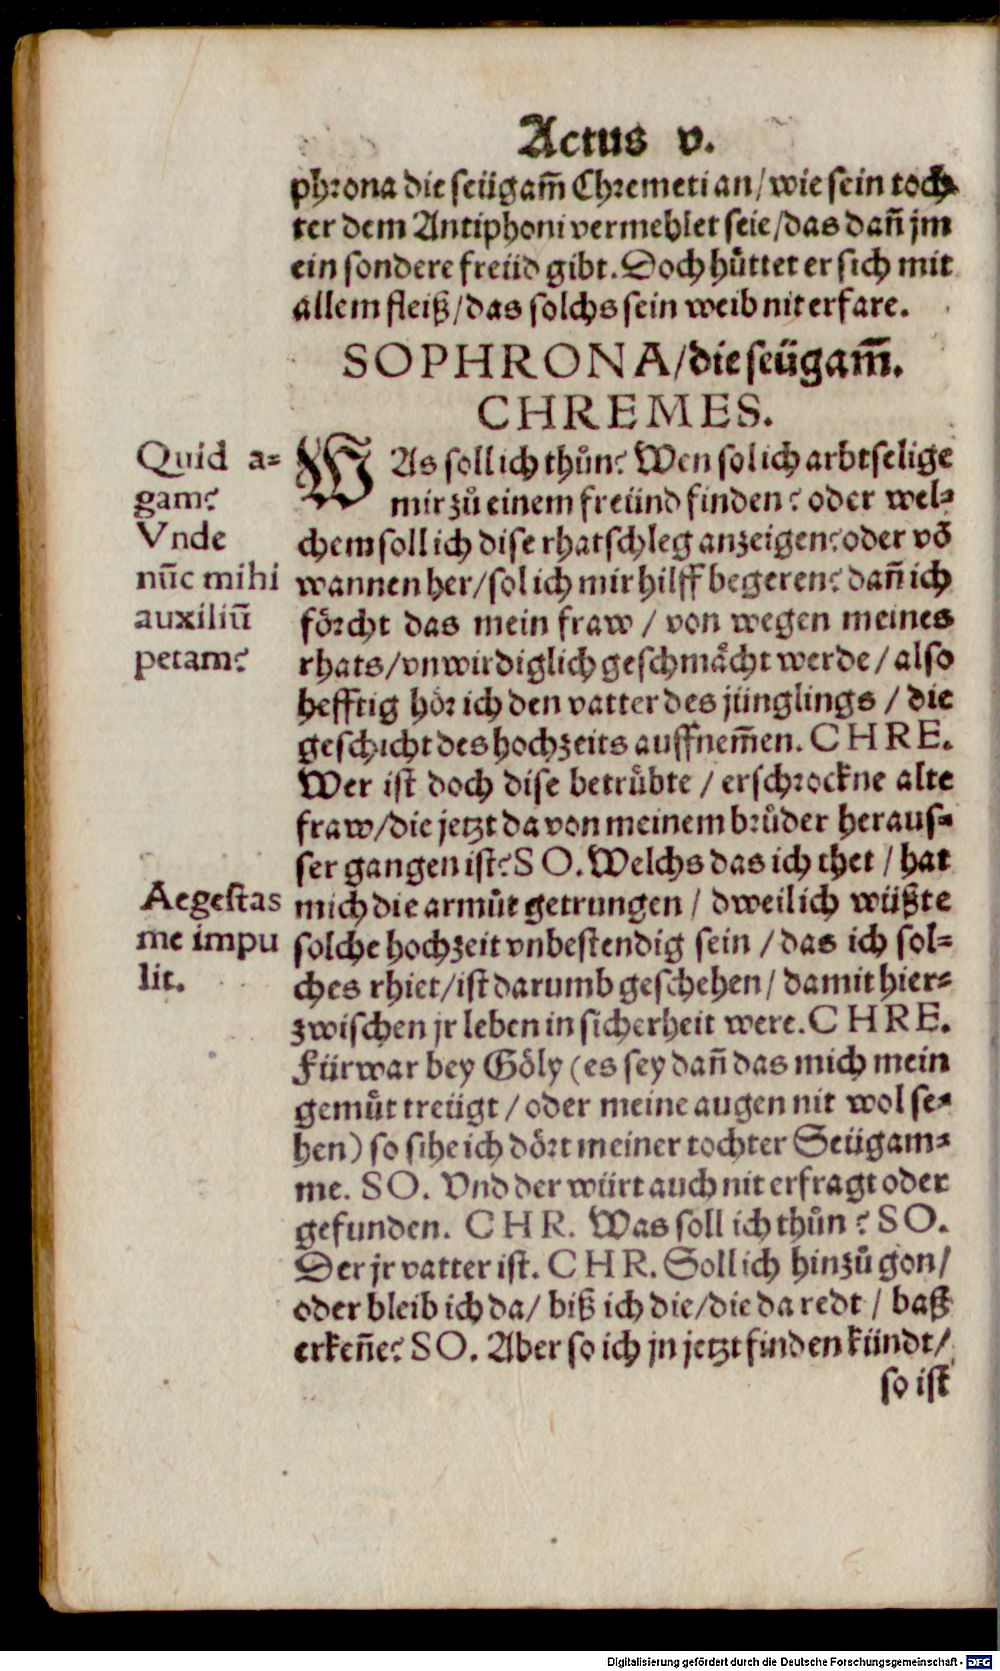 Actus v.
phrona die seügam̄ Chremeti an/ wie sein toch⸗
ter dem Antiphoni vermehlet seie/das dañ jm
ein sondere freüd gibt. Doch hůttet er sich mit
allem fleiß/das solchs sein weib nit erfare.
SOPHRONA/die seügam̄.
CHREMES.
Quid a⸗
gam?
Vnde
nūc mihi
auxiliū
petam?
WAs soll ich thůn? Wen sol ich arbtselige
mir zů einem freünd finden? oder wel⸗
chem soll ich dise rhatschleg anzeigen? oder vō
wannen her/sol ich mir hilff begeren? dañ ich
förcht das mein fraw / von wegen meines
rhats/vnwirdiglich geschmächt werde/ also
hefftig hör ich den vatter des jünglings / die
geschicht des hochzeits auffnem̄en. CHRE.
Wer ist doch dise betrůbte / erschrockne alte
fraw/die jetzt da von meinem brůder heraus⸗
ser gangen ist? SO. Welchs das ich thet / hat
Aegestas
me impu
lit.
mich die armůt getrungen / dweil ich wüßte
solche hochzeit vnbestendig sein / das ich sol⸗
ches rhiet/ist darumb geschehen/ damit hier⸗
zwischen jr leben in sicherheit were. CHRE.
Fürwar bey Göly (es sey dañ das mich mein
gemůt treügt / oder meine augen nit wol se⸗
hen) so sihe ich dört meiner tochter Seügam⸗
me. SO. Vnd der würt auch nit erfragt oder
gefunden. CHR. Was soll ich thůn? SO.
Der jr vatter ist. CHR. Soll ich hinzů gon/
oder bleib ich da/ biß ich die/die da redt / baß
erkeñe? SO. Aber so ich jn jetzt finden kündt/
so ist
Digitalisierung gefördert durch die Deutsche Forschungsgemeinschaft - DFG